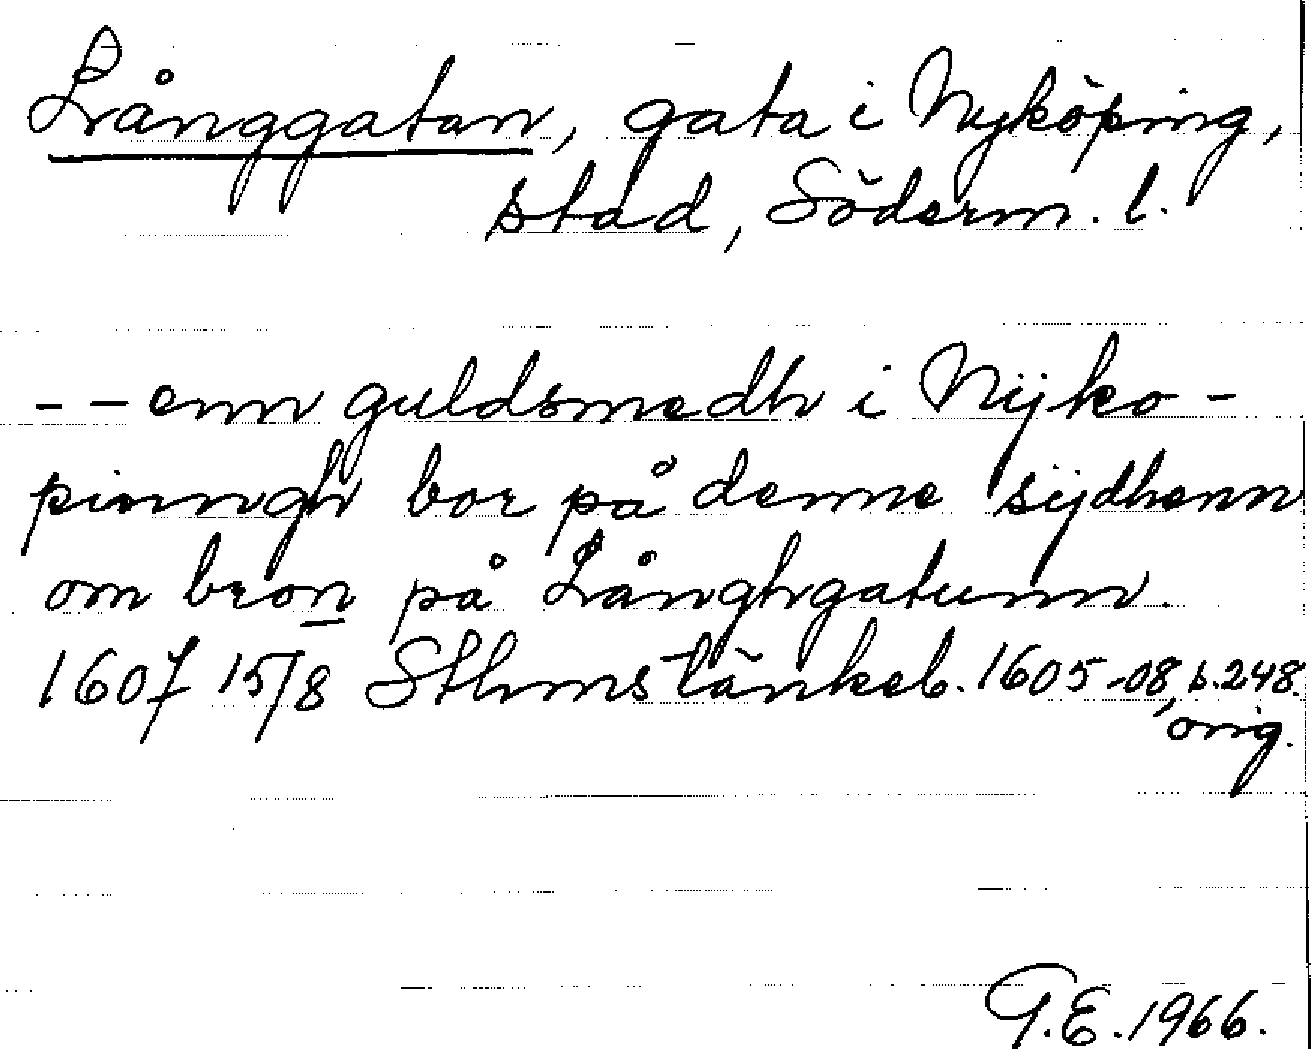 Långgatan, gata i Nyköping,
stad, Söderm. l.
-- enn guldsmedh i Nÿko-
pinngh bor på denne sÿdhenn
om bron på Långhgatunn.
1607 15/8 Sthmstänkeb. 1605-08, s. 248.
orig.
G.E. 1966.